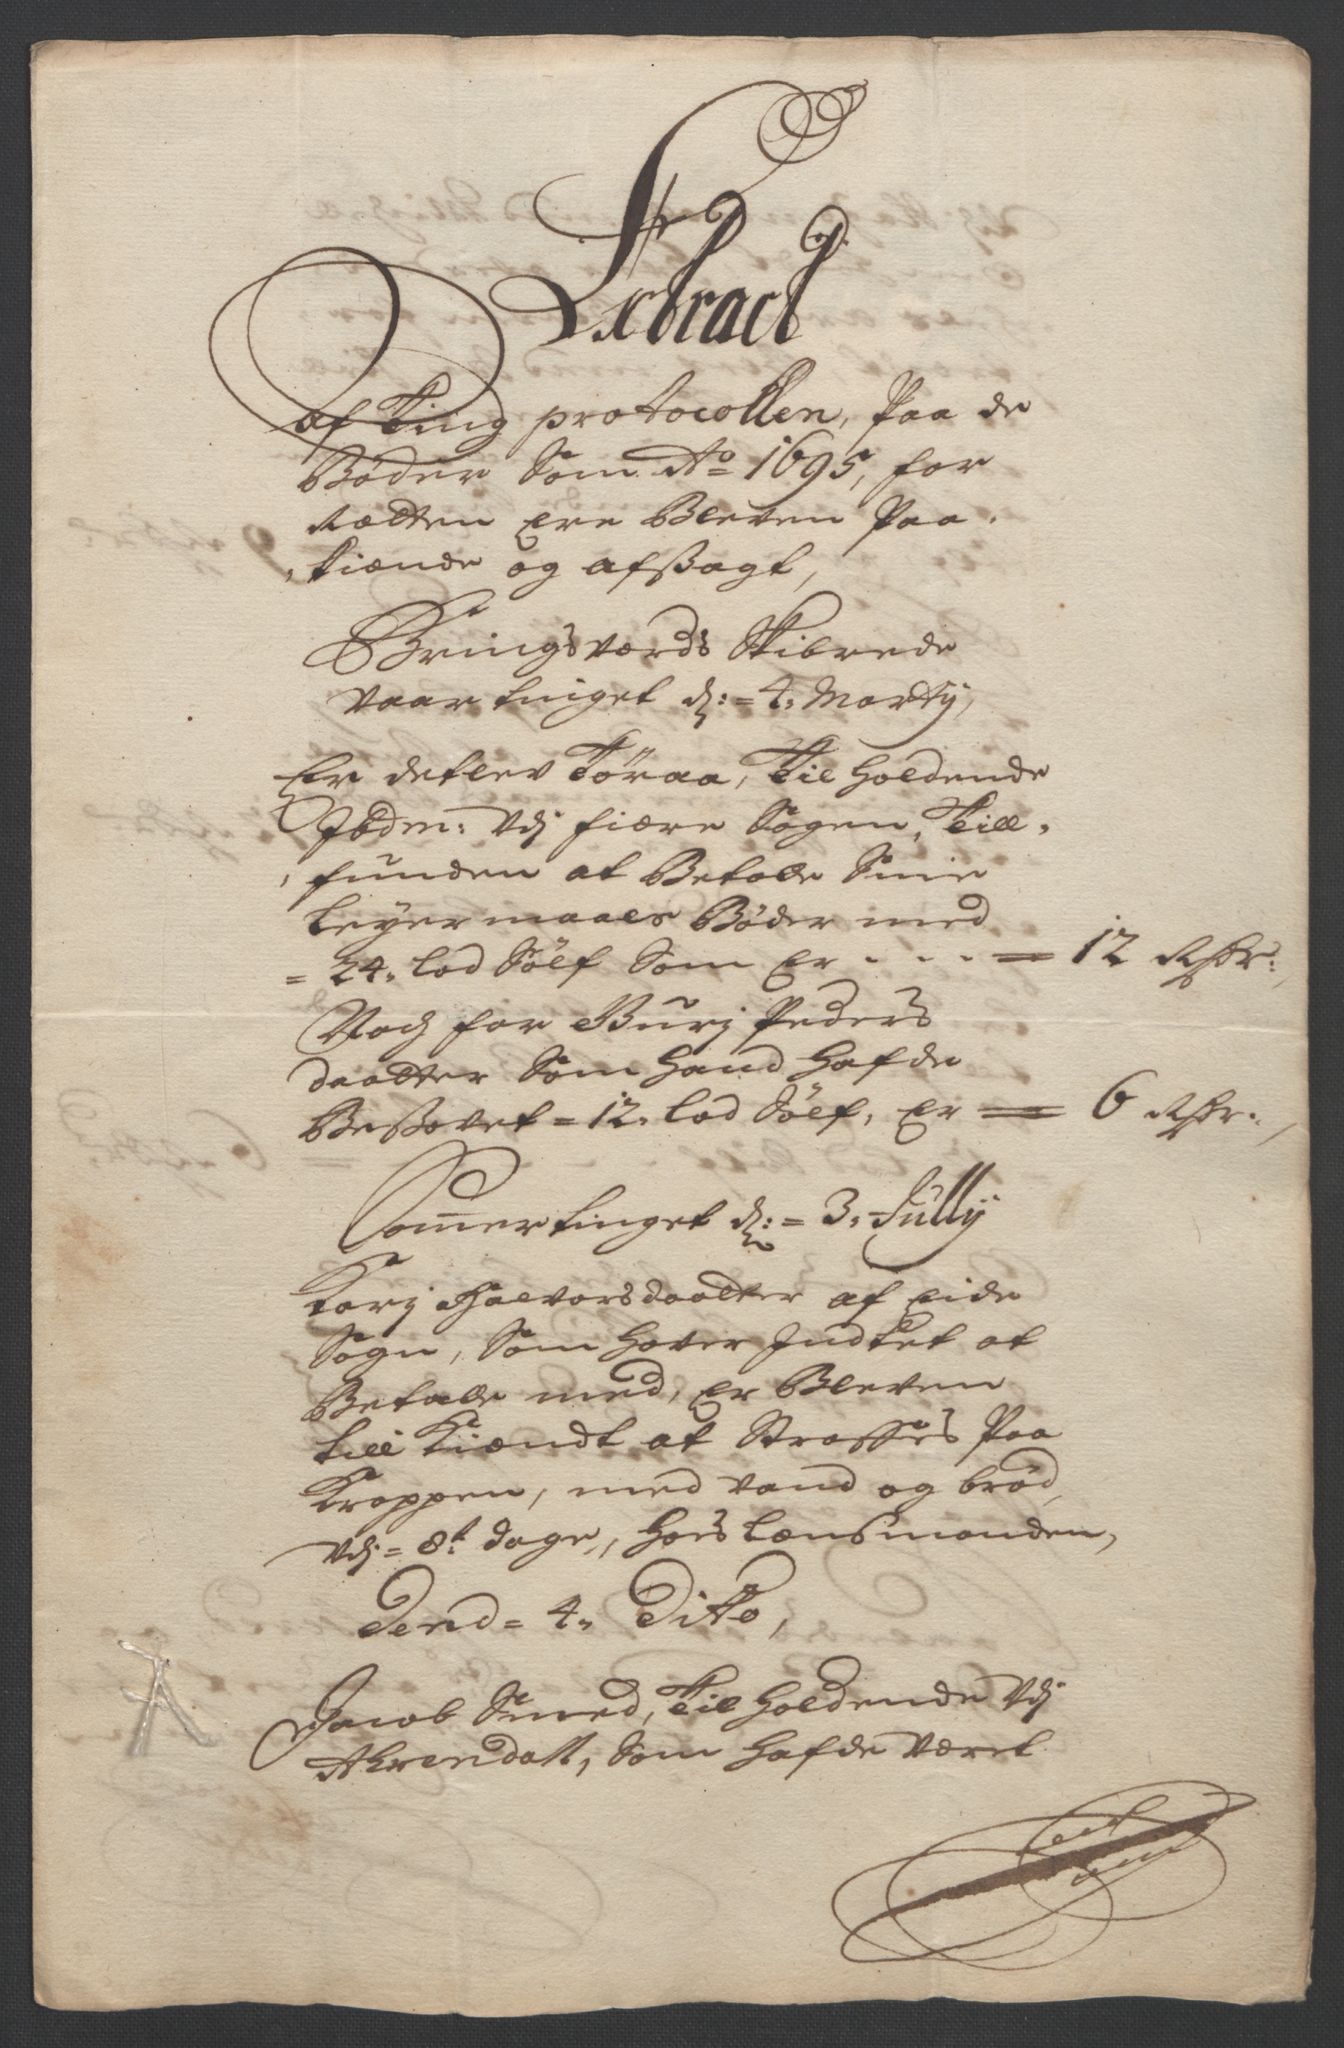 Extract
af Ting protocollen, Paa de
Bøder Som Ao 1695, for
Rætten Ere Bleven Paa-
kiænde og afsagt,
Bringsværds Skibrede
vaar tinget d: = 4. Marty,
Er detlev Töraa, Til Holdende
Ibdm: Udj fiære Sogen, Till-
funden at Betalle Sine
leyermaals Bøder med
= 24. lod Sölf Som Er . . . = 12 Rdr:,
Noch for Burj Peders
daatter Som hand hafde
Besovet = 12. lod Sölf, Er = 6 Rdr:,
Som̄er tinget d: = 3. Jully
Karj Halvorsdaatter af Eide
Sogn, Som haver Indtet at
Betale med, Er Bleven
till Kiændt at Straffes Paa
Kroppen, med vand og brød,
Udj = 8t dage, hois lænsmanden,
Dend = 4. Dito,
Jacob Smed, Til Holdende Udj
Ahrendall, Som hafde været